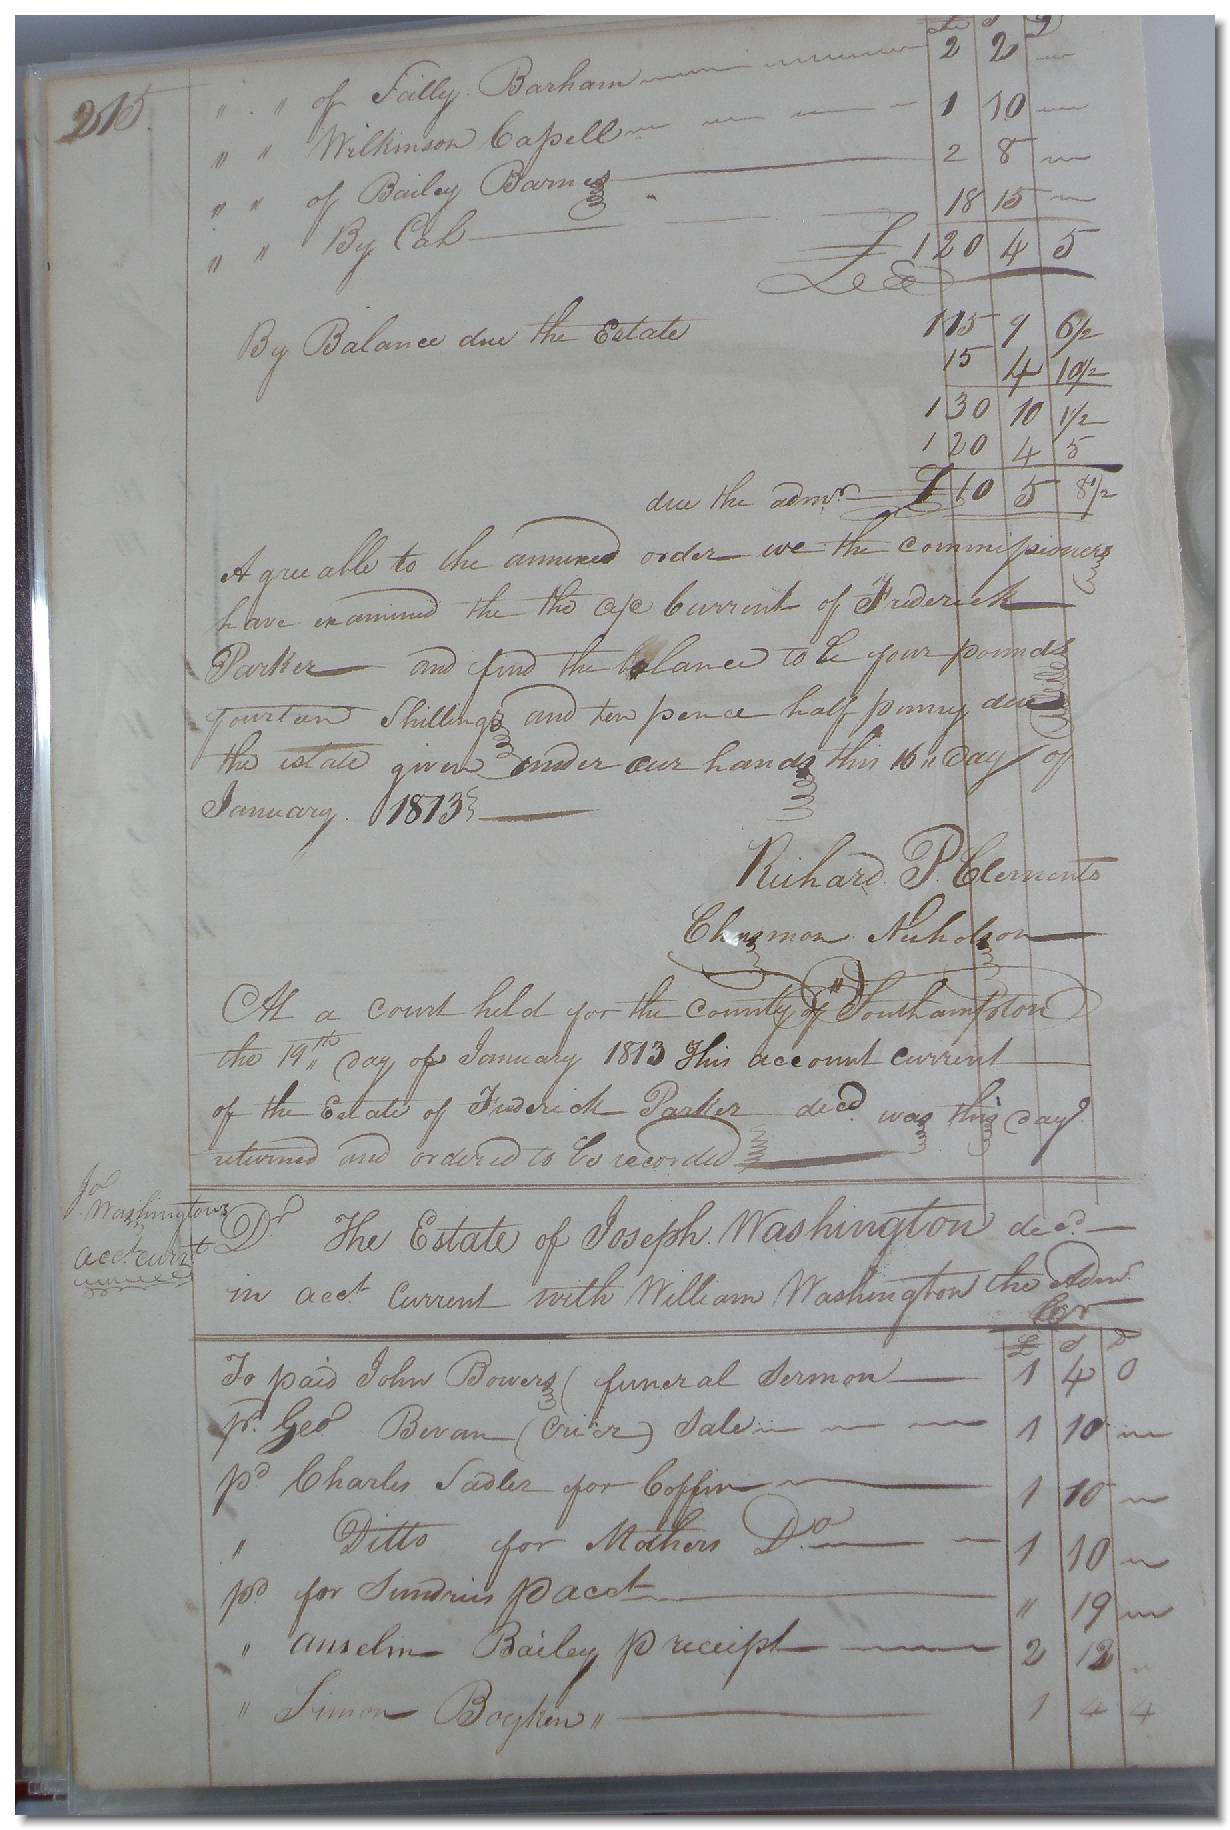 215
£ S D
" " of Sally Barham 2 2 "
" " Wilkinson Capell 1 10 "
" " of Bailey Barnes 2 8 "
" " By Cash 18 15 "
£ 120 4 5
By Balance due the Estate 115 9 6/2
15 4 10/2
130 10 1/2
120 4 5
due the admr £ 10 5 8 1/2
Agreeable to the annexed order we the commissioners
have examined the the a/c Current of Frederick
Parker and find the balance to be four pounds
fourteen Shillings and ten pence half penny due
the estate given under our hands this 16th day of
January 1813
Richard P. Clements
Chapman Nicholson
At a court held for the county of Southampton
the 19th day of January 1813 This account current
of the Estate of Frederick Parker decd was this day
returned and ordered to be recorded
Jos Washingtons
acct curt
Dr The Estate of Joseph Washington decd
in acct Current with William Washington the Admr
Cr
£ S D
To paid John Bowers ( funeral Sermon 1 4 0
pd Geo Bevan (Crier) Sale 1 10 "
pd Charles Sadler for Coffin 1 10 "
" Ditto for Mothers Do 1 10 "
pd for Sundries P acct " 19 "
" Anselm Bailey P receipt 2 12 "
" Simon Boykin " 1 4 4